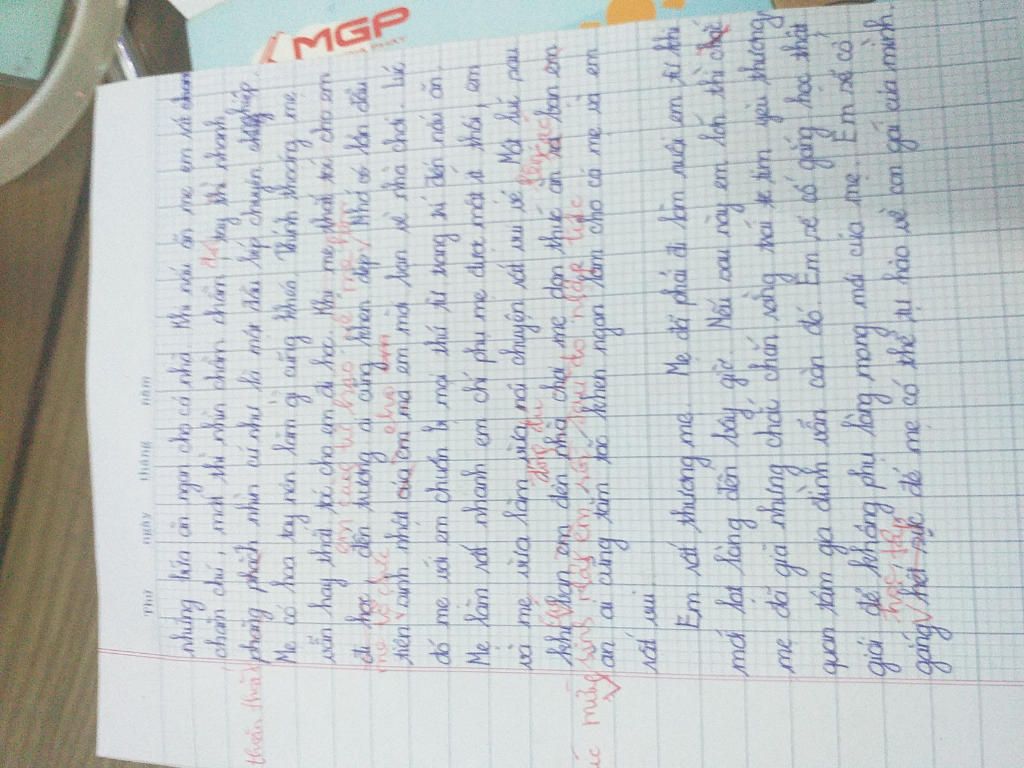 MGP
Thứ ngày tháng năm
những bữa ăn ngon cho cả nhà. Khi nấu ăn mẹ em rất chăm
chăm chú, mắt thì nhìn chằm chằm tay thì nhanh
thoăn thoắt
phăng phách nhìn cứ như là một đầu bếp chuyên nghiệp.
Mẹ có hoa tay nên làm gì cũng khéo. Thỉnh thoảng mẹ
vẫn hay thắt tóc cho em đi học. Khi mẹ thắt tóc cho em
em cảm tự hào về mẹ lắm
đi học đến trường ai cũng khen đẹp. Nhớ có lần đầu
mẹ tổ chức cho
tiên sinh nhật của em mà em mời bạn về nhà chơi. Lúc
đó mẹ với em chuẩn bị mọi thứ từ trang trí đến nấu ăn.
Mẹ làm rất nhanh em chỉ phụ mẹ đưa một ít thôi, em
và mẹ vừa làm vừa nói chuyện rất vui vẻ. Một lúc sau
đông đủ các
khi bạn em đến nhà chơi mẹ dọn thức ăn ra bạn em
mừng sinh nhật em sau đó nhập tiệc
ăn ai cũng tấm tắc khen ngon làm cho cả mẹ và em
rất vui.
Em rất thương mẹ. Mẹ đã phải đi làm nuôi em từ khi
mới lọt lòng đến bây giờ. Nếu sau này em lớn thì chắc
mẹ đã già nhưng chắc chắn rằng trái tim yêu thương
quan tâm gia đình vẫn còn đó. Em sẽ cố gắng học thật
giỏi để không phụ lòng mong mỏi của mẹ. Em sẽ cố
học tập
gắng hết sức để mẹ có thể tự hào về con gái của mình.